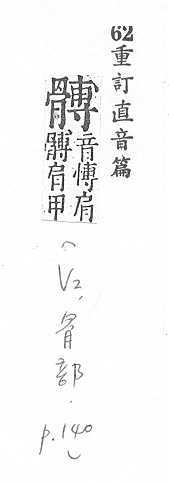 62重訂直音篇
髆
音愽肩
髆肩甲
(V2,骨部.p.140)